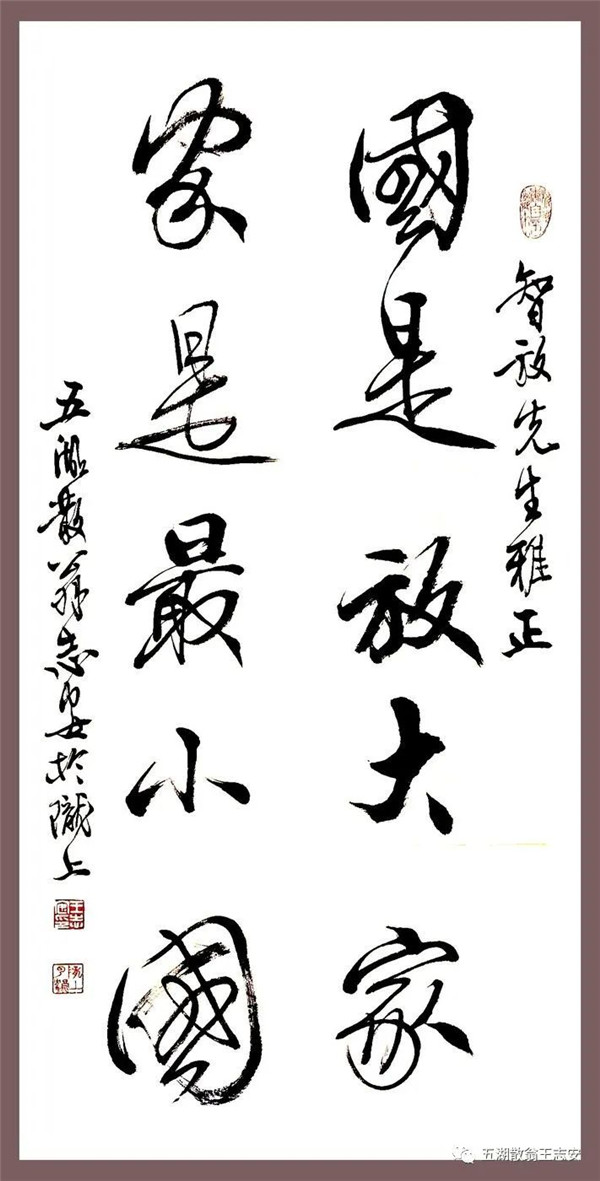 智放先生雅正
國是放大家
家是最小國
五湖散翁志安於隴上
五湖散翁王志安